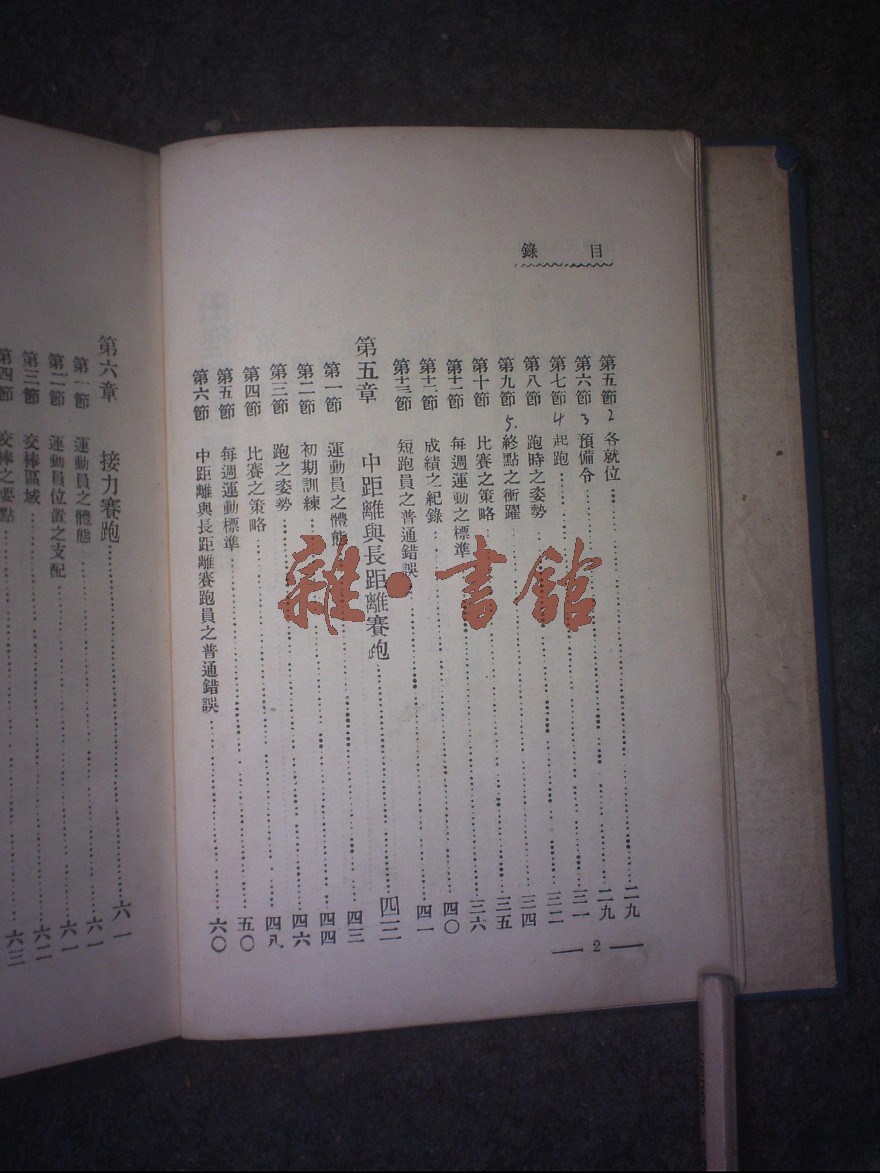 目錄
第五節 2 各就位……二九
第六節 3 預備令……三一
第七節 4 起跑……三二
第八節 跑時之姿勢……三四
第九節 5. 終點之衝躍……三五
第十節 比賽之策略……三六
第十一節 每週運動之標準……四〇
第十二節 成績之紀錄……四一
第十三節 短跑員之普通錯誤
第五章 中距離與長距離賽跑……四三
第一節 運動員之體態……四三
第二節 初期訓練……四四
第三節 跑之姿勢……四六
第四節 比賽之策略……四八
第五節 每週運動標準……五〇
第六節 中距離與長距離賽跑員之普通錯誤……六〇
2
第六章 接力賽跑……六一
第一節 運動員之體態……六一
第二節 運動員位置之支配……六一
第三節 交棒區域……六二
第四節 交棒之要點……六三
雜·書館